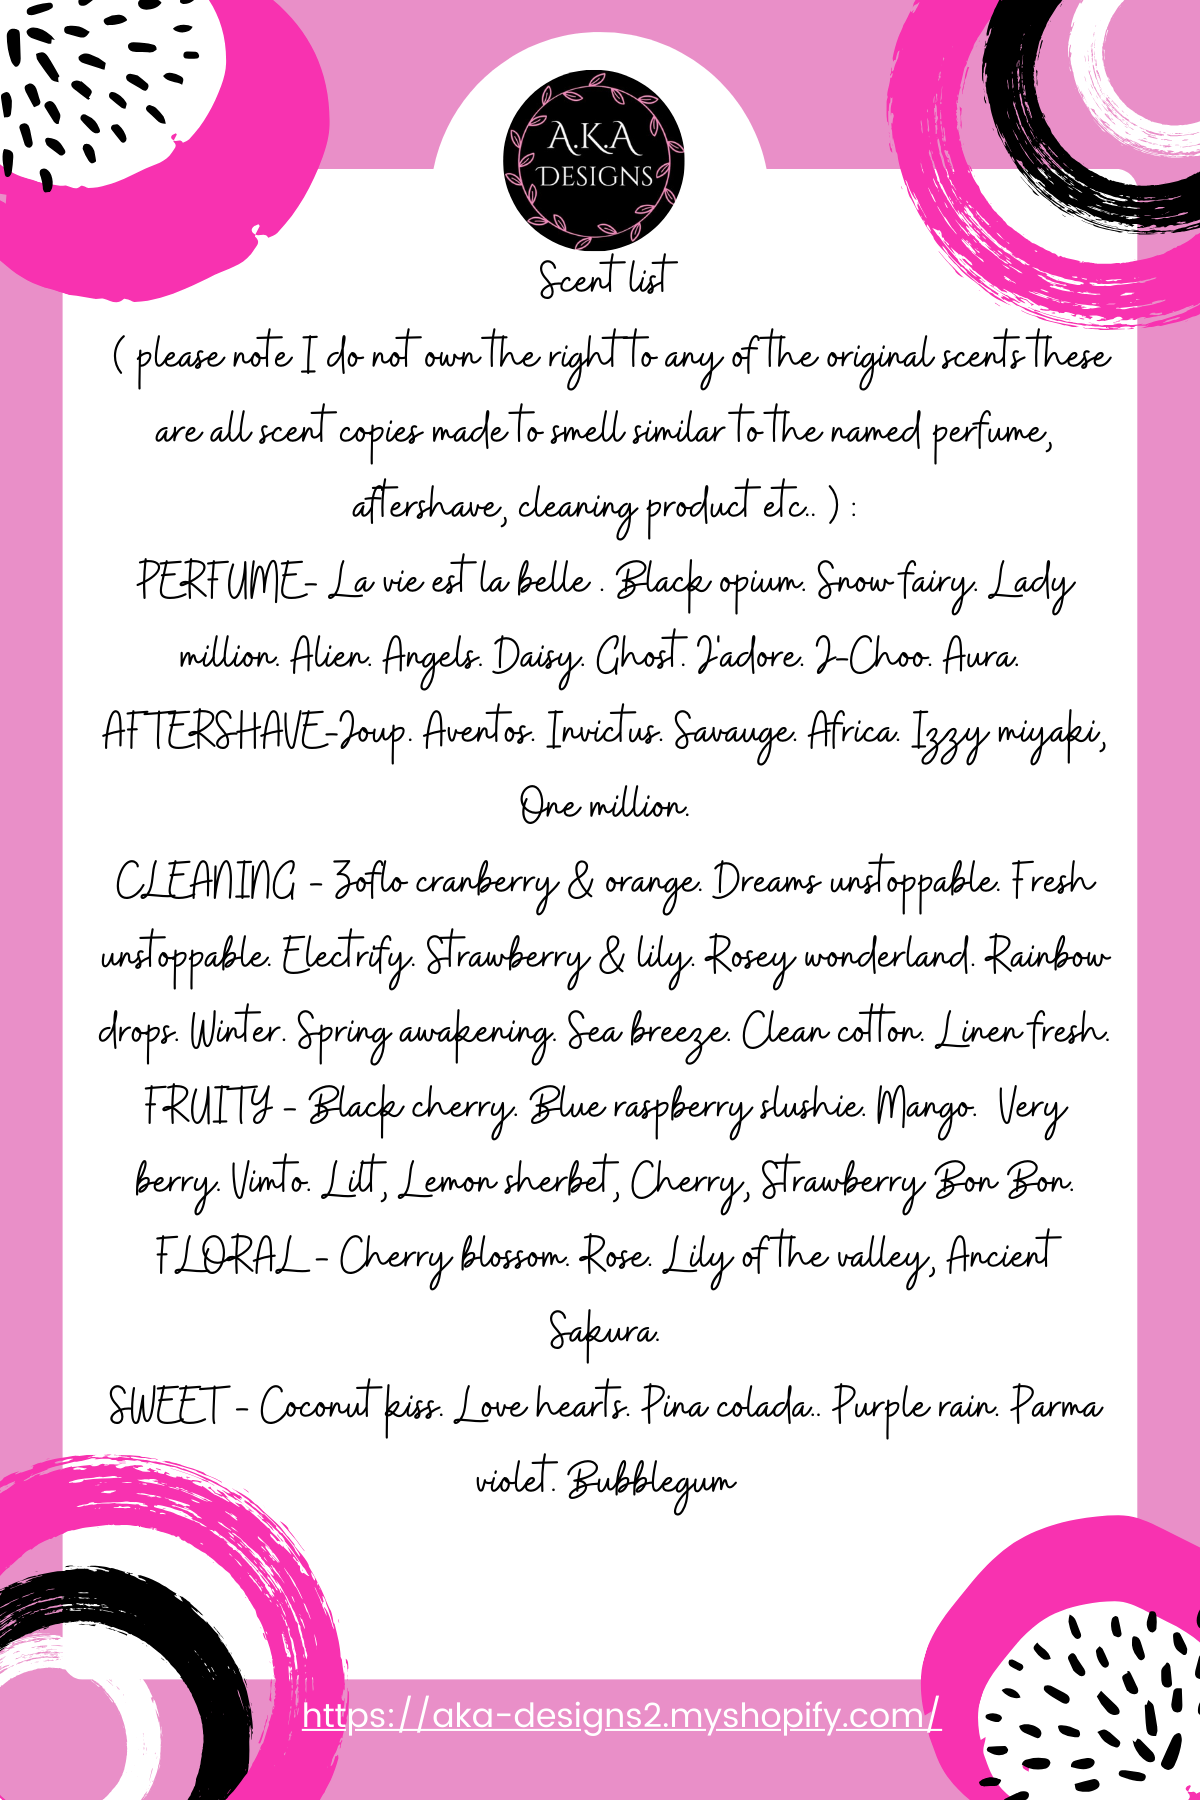 A.K.A
DESIGNS
Scent list
( please note I do not own the right to any of the original scents these
are all scent copies made to smell similar to the named perfume,
aftershave, cleaning product etc.. ) :
PERFUME- La vie est la belle . Black opium. Snow fairy. Lady
million. Alien. Angels. Daisy. Ghost. J'adore. J-Choo. Aura.
AFTERSHAVE-Joup. Aventos. Invictus. Savauge. Africa. Izzy miyaki,
One million.
CLEANING - Zoflo cranberry & orange. Dreams unstoppable. Fresh
unstoppable. Electrify. Strawberry & lily. Rosey wonderland. Rainbow
drops. Winter. Spring awakening. Sea breeze. Clean cotton. Linen fresh.
FRUITY - Black cherry. Blue raspberry slushie. Mango.  Very
berry. Vimto. Lilt, Lemon sherbet, Cherry, Strawberry Bon Bon.
FLORAL - Cherry blossom. Rose. Lily of the valley, Ancient
Sakura.
SWEET - Coconut kiss. Love hearts. Pina colada.. Purple rain. Parma
violet. Bubblegum
https://aka-designs2.myshopify.com/